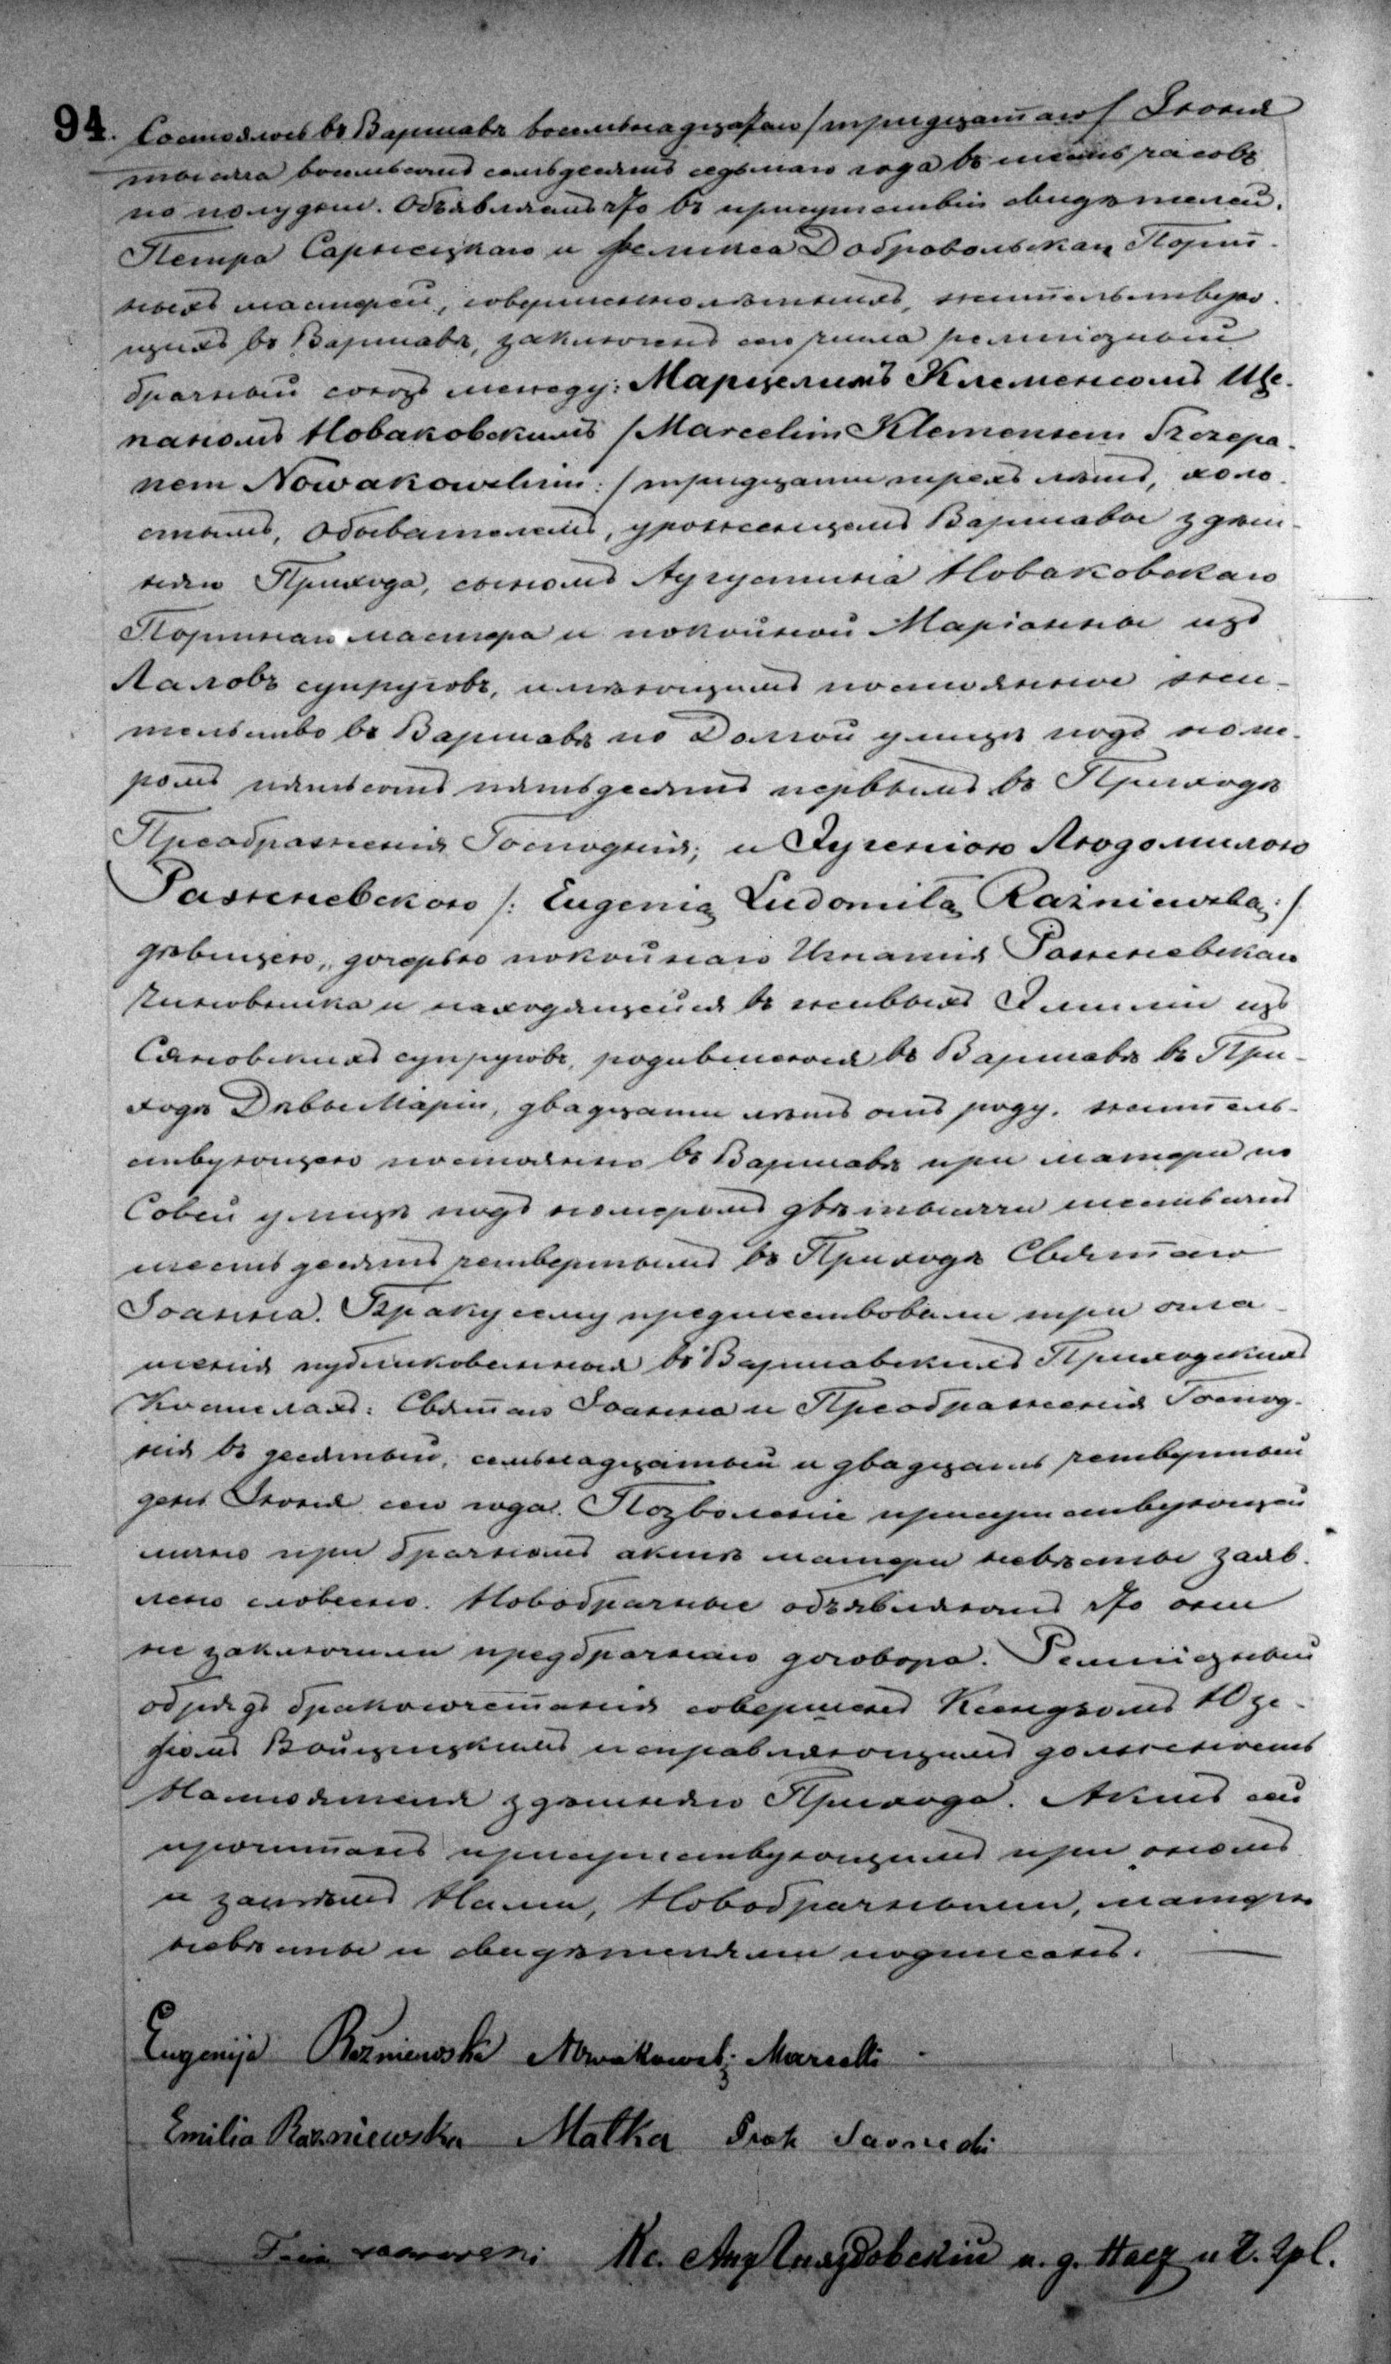 94. Состоялось въ Варшавѣ восемнадцатаго /тридцатаго/ Іюня
тысяча восемьсотъ семьдесятъ седьмаго года въ шесть часовъ
по полудни. Объявляемъ что въ присутствіи свидѣтелей.
Петра Сарнецкаго и Феликса Добровольскаго Портн-
ныхъ мастеровъ, совершеннолѣтнихъ, жительствую-
щихъ въ Варшавѣ, заключенъ сего числа религіозный
брачный союзъ между: Марцелимъ Клеменсомъ Ще-
паномъ Новаковскимъ /Marcelim Klemensem Szczepa-
nem Nowakowskim:/ тридцати трехъ лѣтъ, холо-
стымъ, обывателемъ, уроженцемъ Варшавы здѣш-
няго Прихода, сыномъ Аугустина Новаковскаго
Портнаго мастера и покойной Маріанны изъ
Лаловъ супруговъ, имѣющимъ постоянное жи-
тельство въ Варшавѣ по Долгой улицѣ подъ номе-
ромъ пятьсотъ пятьдесятъ первымъ въ Приходѣ
Преображенія Господня; и Эугеніею Людомилою
Ражневскою /: Eugenią Ludomiłą Rażniewską:/
дѣвицею, дочерью покойнаго Игнатія Ражневскаго
чиновника и находящейся въ живыхъ Эмиліи изъ
Сяновскихъ супруговъ, родившеюся въ Варшавѣ въ При-
ходѣ Дѣвы Маріи, двадцати лѣтъ отъ роду, житель-
ствующею постоянно въ Варшавѣ при матери по
Совей улицѣ подъ номеромъ двѣ тысячи шестьсотъ
шестьдесятъ четвертымъ въ Приходѣ Святаго
Іоанна. Браку сему предшествовали три огла-
шенія публикованныя въ Варшавскихъ Приходскихъ
Костелахъ: Святаго Іоанна и Преображенія Господ-
ня въ десятый, семнадцатый и двадцать четвертый
день Іюня сего года. Позволеніе присутствующей
лично при брачномъ актѣ матери невѣсты заяв-
лено словесно. Новобрачные объявляютъ что они
не заключили предбрачнаго договора. Религіозный
обрядъ бракосочетанія совершенъ Ксендзомъ Юзе-
фомъ Войцицкимъ исправляющимъ должность
Настоятеля здѣшняго Прихода. Актъ сей
прочитанъ присутствующимъ при ономъ
и затѣмъ Нами, Новобрачными, матерью
невѣсты и свидѣтелями подписанъ.
Eugenija Rożniewska Nowakowski Marcelli
Emilia Rażniewska Matka Piotr Sarnecki
Кс. и. д. Наст и Ч.